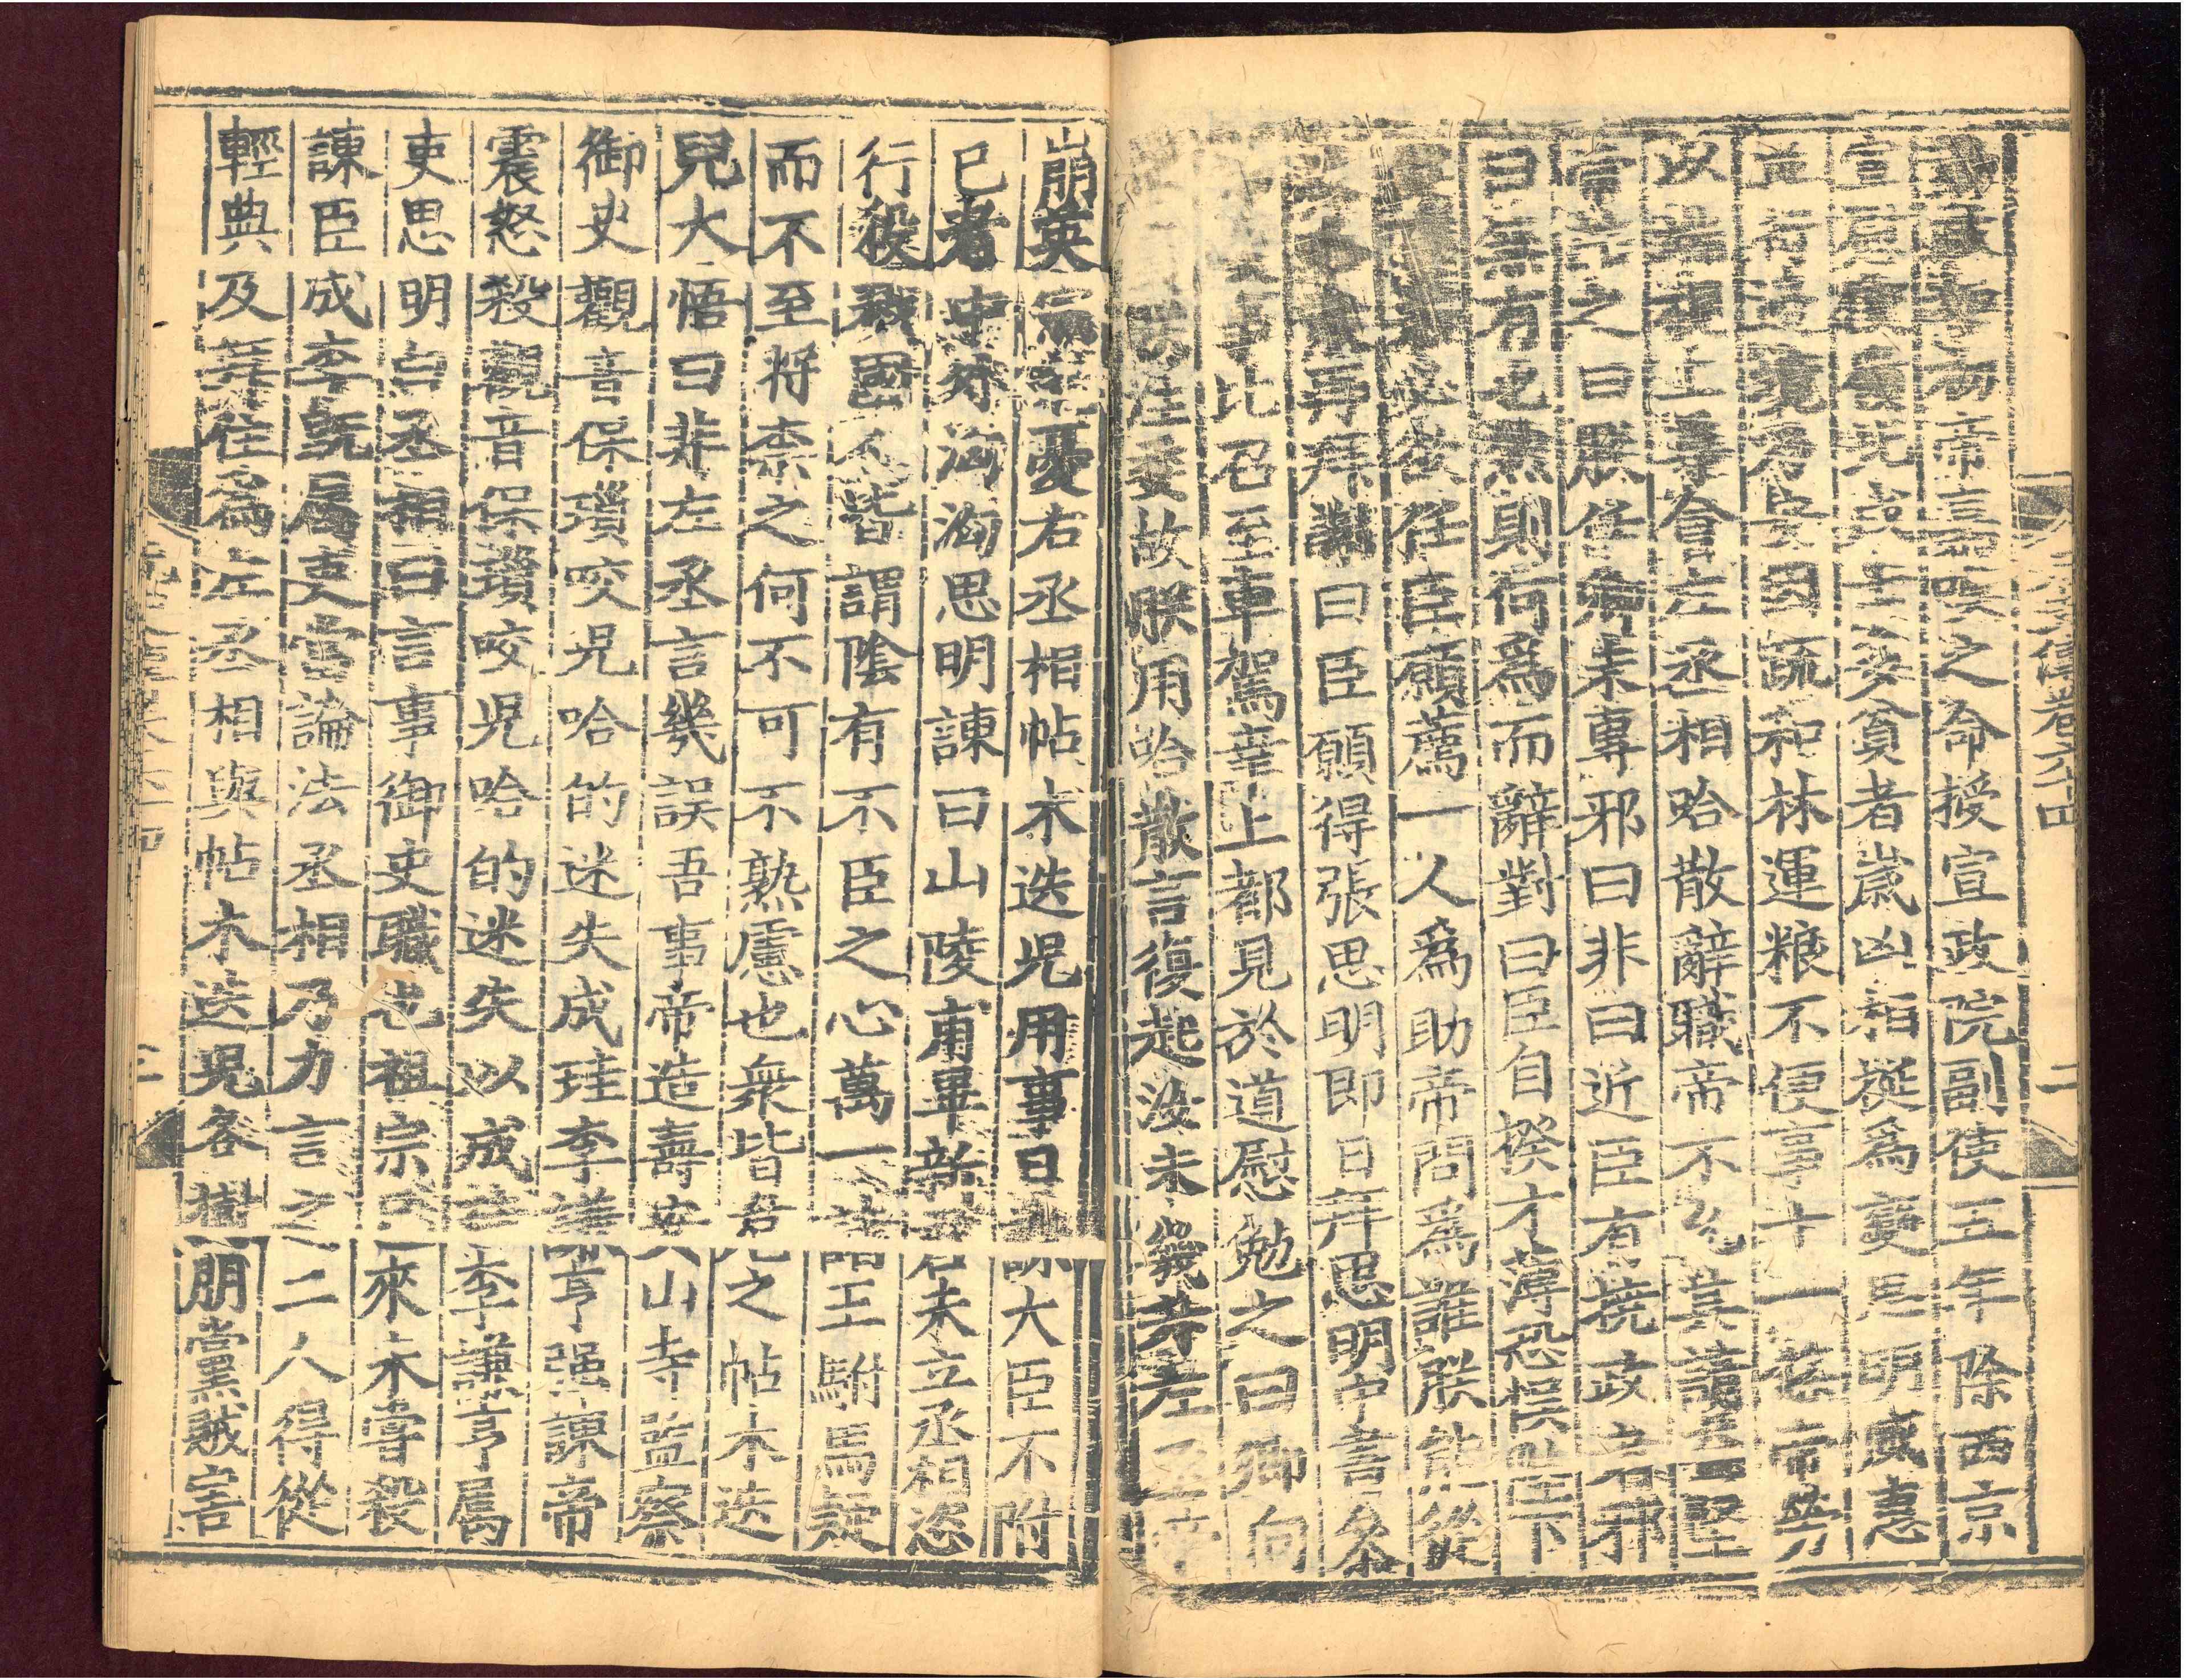 帝言而喋之命授宣政院副使五年除西京
宣慰使嶺北戍士多貧者歲凶相挻爲變思明威惠
並行邊境乃安因疏和林運糧不便事十一老帝勞
以端硯上尊會左丞相哈散辭職帝不允其請益堅
帝詰之曰朕任卿未專邪曰非曰近臣有撓政者邪
曰無有也然則何爲而辭對曰臣自揆才薄恐悞陛下
必欲任臣願薦一人爲助帝問爲誰朕能從
再拜謝曰臣願得張思明即日拜思明中書參
比召至車駕幸上都見於道慰勉之曰卿向
注委故朕用哈散言復起汝未幾芽左丞帝
崩英宗宅憂右丞相帖木迭児用事日誅大臣不附
已者中外洶洶思明諫曰山陵甫畢新君未立丞相恣
行殺戮國人皆謂陰有不臣之心萬一諸王駙馬疑
而不至将柰之何不可不熟慮也衆皆危之帖木迭
兒大悟曰非左丞言幾誤吾事帝造壽安山寺監察
御史觀音保瑣咬兒哈的迷失成珪李謙亨强諫帝
震怒殺觀音保瑣咬児哈的迷失以成珪李謙亨属
吏思明白丞相曰言事御史職也祖宗已來未嘗殺
諫臣成李旣属吏當論法丞相乃力言之二人得從
輕典及拜住爲左丞相與帖木迭児各樹朋黨賊害